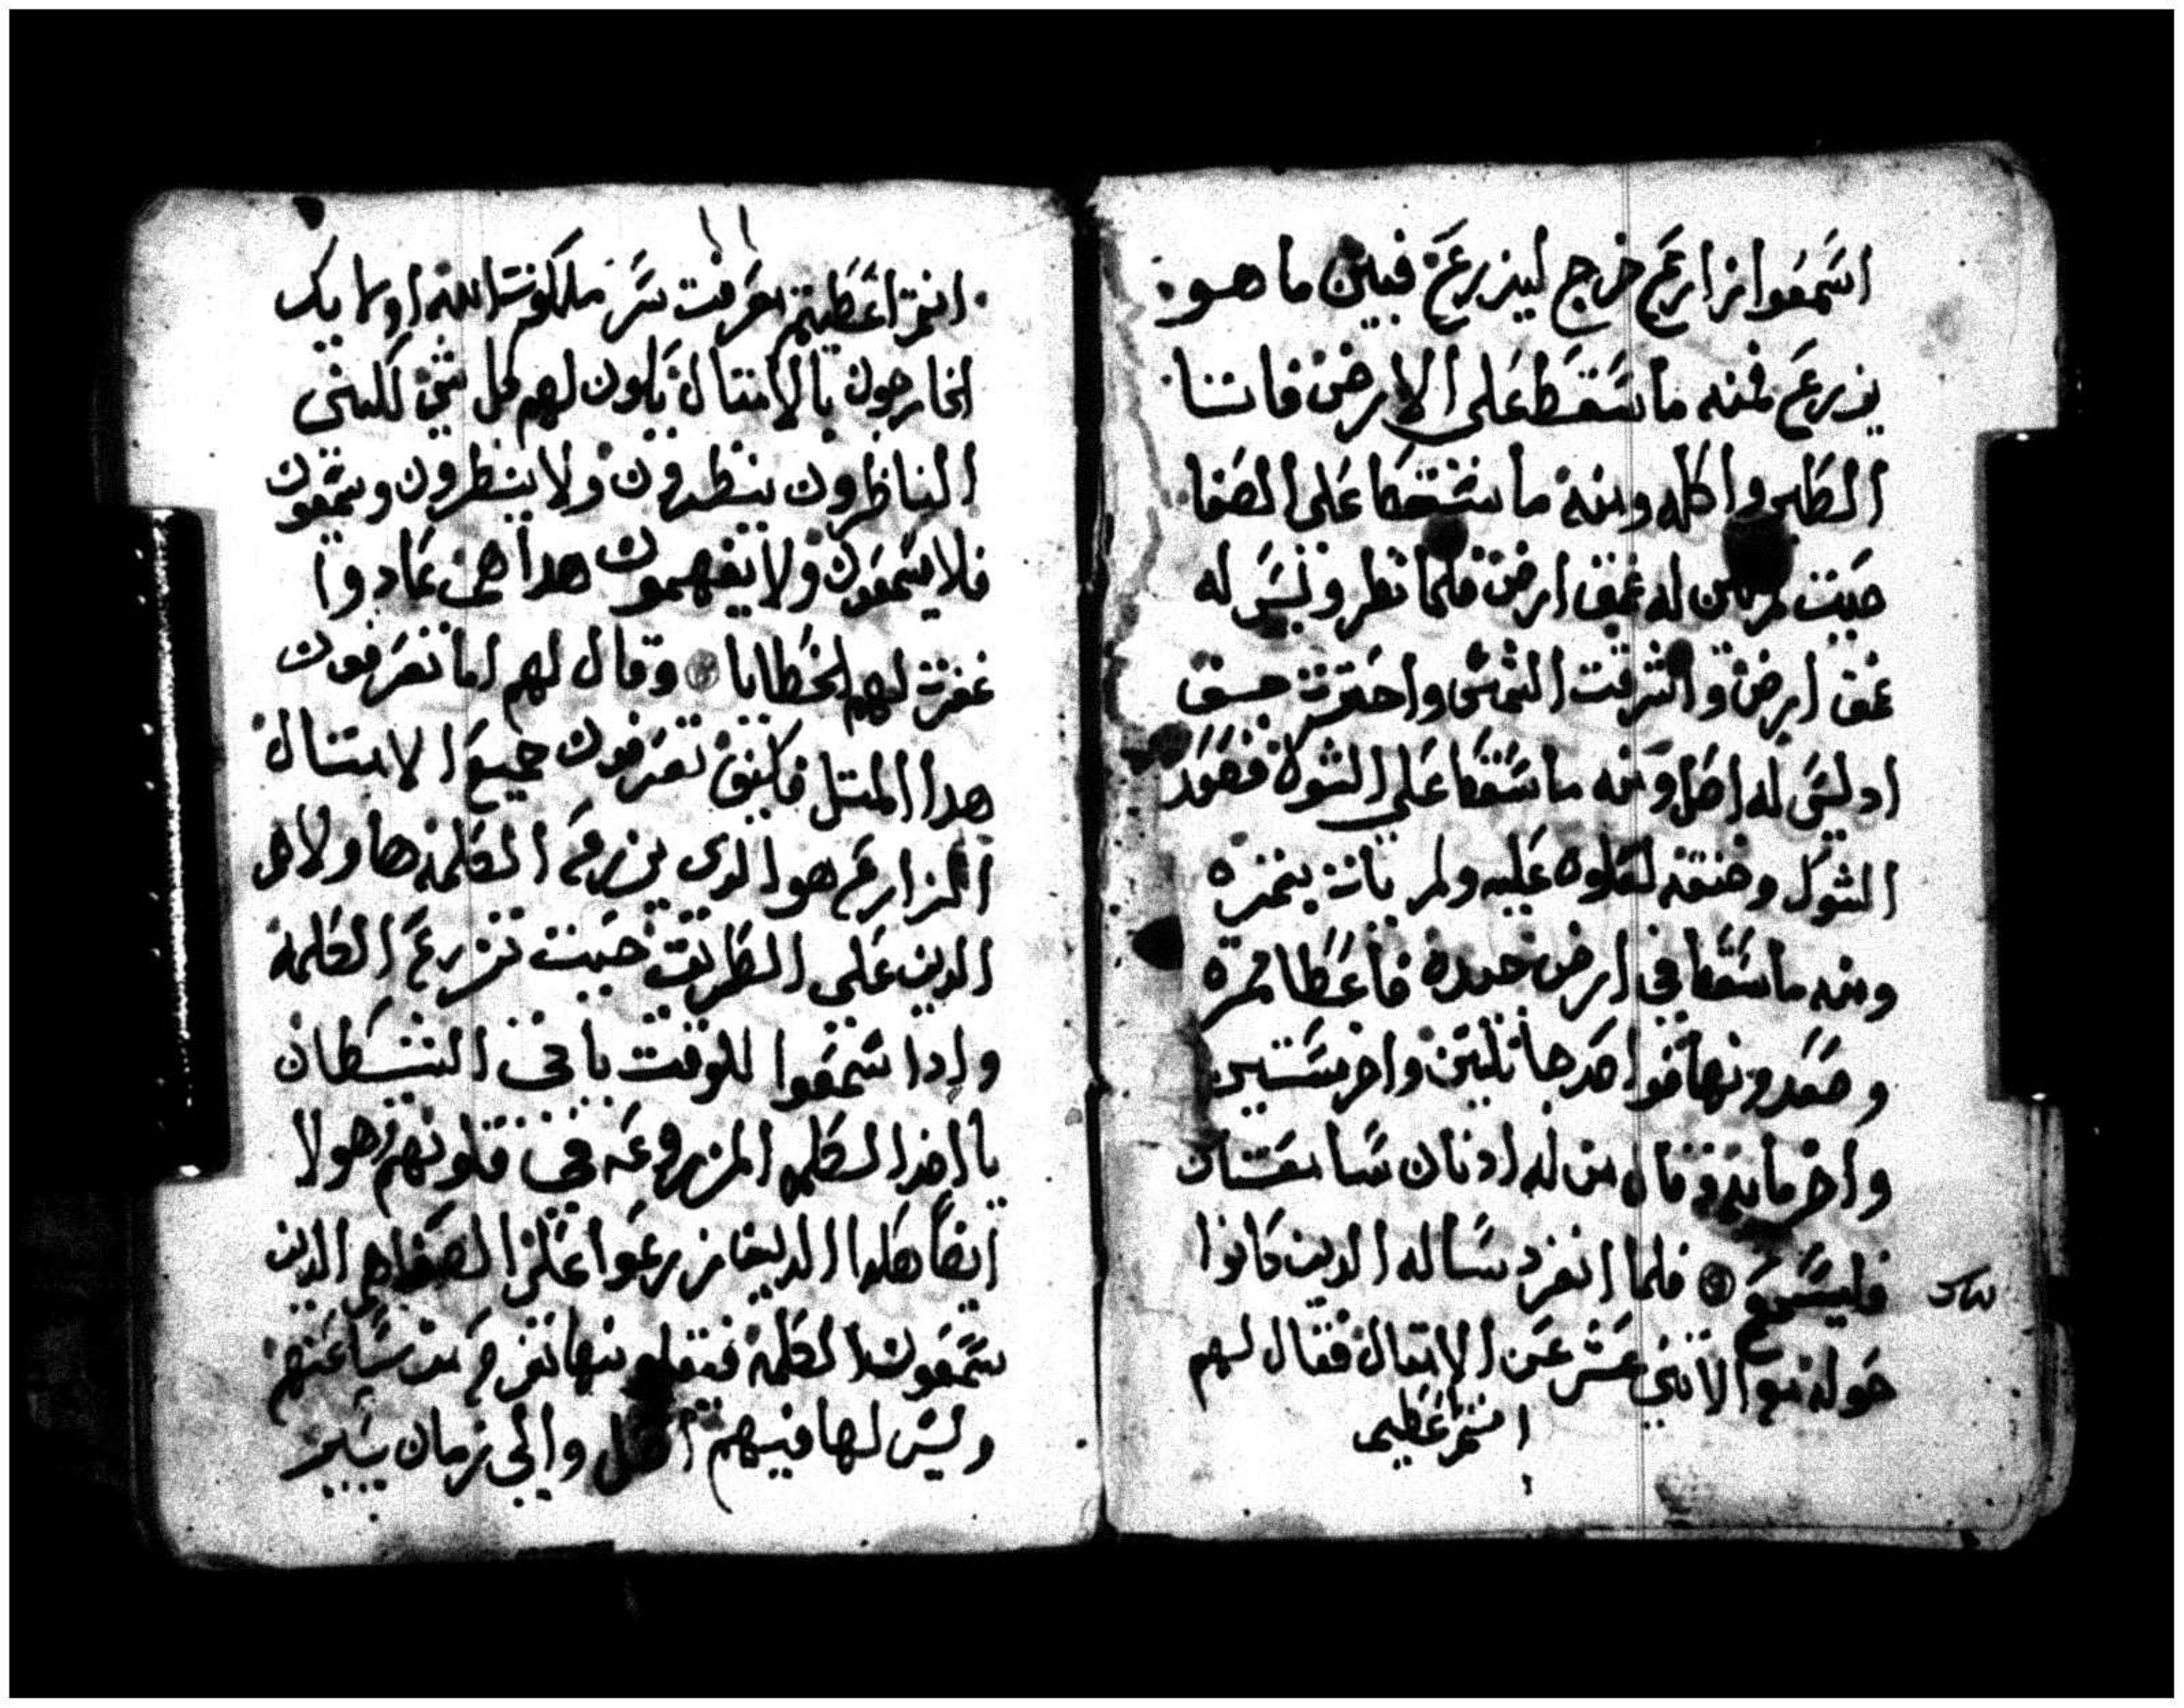 اسمعوا زارع خرج ليزرع فبين ما هو
يزرع فمنه ما سقط على الارض فاتتا
الطير واكله ومنه ما سقط على الصفا
حيث لم يكن له عمق ارض فلما نظر وليس له
عمق ارض واشرقت الشمس واحترقت جسق
اد ليس له اصل ومنه ما سقط على الشوك فصعد
الشوك وخنقه لعلوه عليه ولم يات بثمره
ومنه ما سقط في ارض جيده فاعطا ثمره
وصعد ونما فواحد جا بثلثين واخر بستين
واخر بمايه وقال من له ادنان سامعتان
فليسمع فلما انفرد ساله الدين كانوا
حوله مع الاثني عشر عن الامثال فقال لهم
انتم اعطيتم
انتم اعطيتم معرفت سر ملكوت الله اوليك
الخارجون بالامتال يكون لهم كل شي لكيني
الناظرون ينظرون ولا ينظرون ويسمعون
فلا يسمعون ولا يفهمون هدا هم عادوا
غفرت لهم الخطايا وقال لهم اما تعرفون
هدا المتل فكيف تعرفون جميع الامتال
الزارع هو الدى يزرع الكلمة هاولاهم
الدين على الطريق حيث تزرع الكلمة
وادا سمعوا للوقت ياتي الشيطان
ياخد الكلمه المزروعه في قلوبهم هولا
ايضا هكدا الدين زرعوا على الصفا هم الدين
يسمعون الكلمة فيقبلونها بفرح من ساعتهم
وليس لها فيهم اصل والى زمان يسير